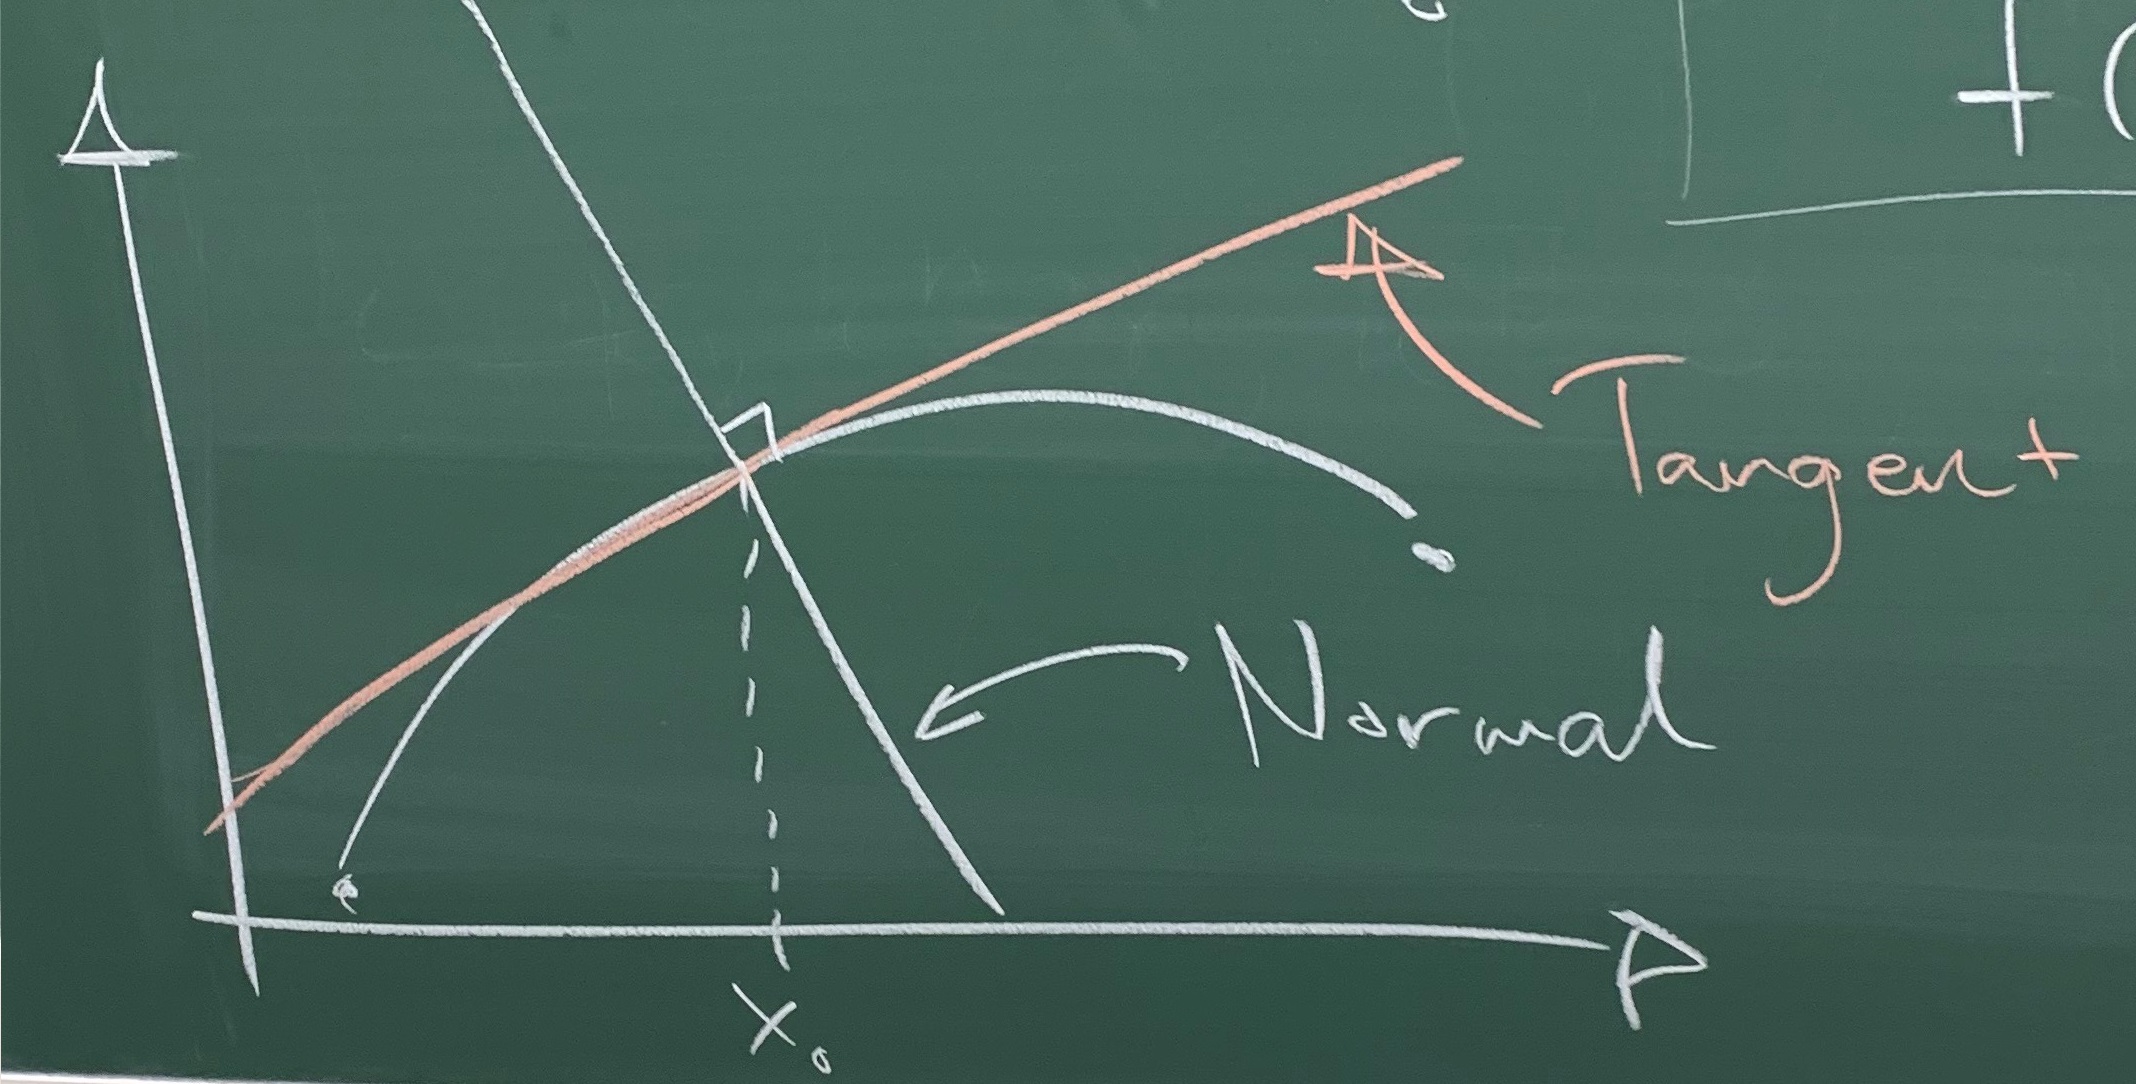 Tangent
Normal
x₀